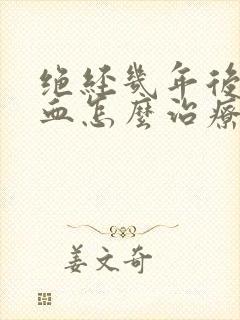 绝经几年後
血怎麼治療
姜文奇